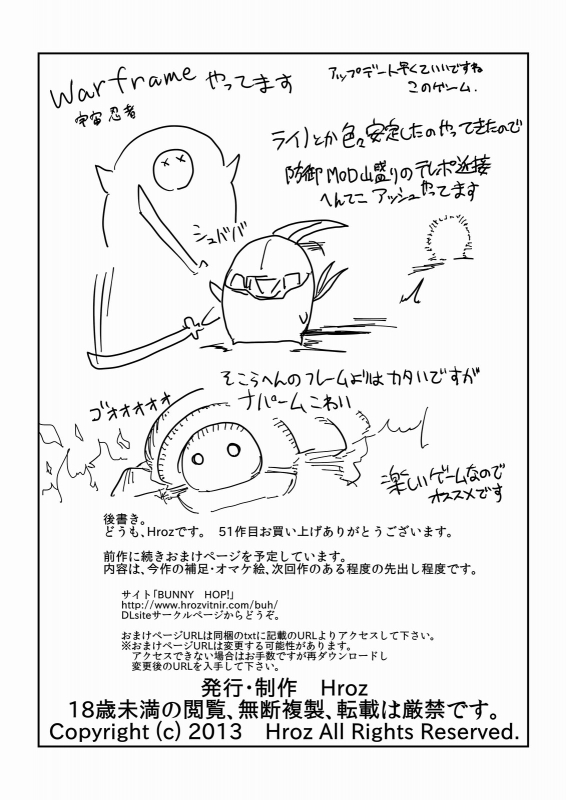 Warframe やってます
宇宙忍者
アップデート早くていいですね
このゲーム.
ライノとか色々安定したのやってきたので
防御MOD山盛りのテレポ近接
へんてこ アッシュやってます
シュババ
そこらへんのフレームよりはカタいですが
ナパームこわい
ゴォオオオオ
楽しいゲームなので
オススメです
後書き。
どうも、Hrozです。 51作目お買い上げありがとうございます。
前作に続きおまけページを予定しています。
内容は、今作の補足・オマケ絵、次回作のある程度の先出し程度です。
サイト「BUNNY HOP!」
http://www.hrozvitnir.com/buh/
DLsiteサークルページからどうぞ。
おまけページURLは同梱のtxtに記載のURLよりアクセスして下さい。
※おまけページURLは変更する可能性があります。
アクセスできない場合はお手数ですが再ダウンロードし
変更後のURLを入手して下さい。
発行・制作 Hroz
18歳未満の閲覧、無断複製、転載は厳禁です。
Copyright (c) 2013 Hroz All Rights Reserved.